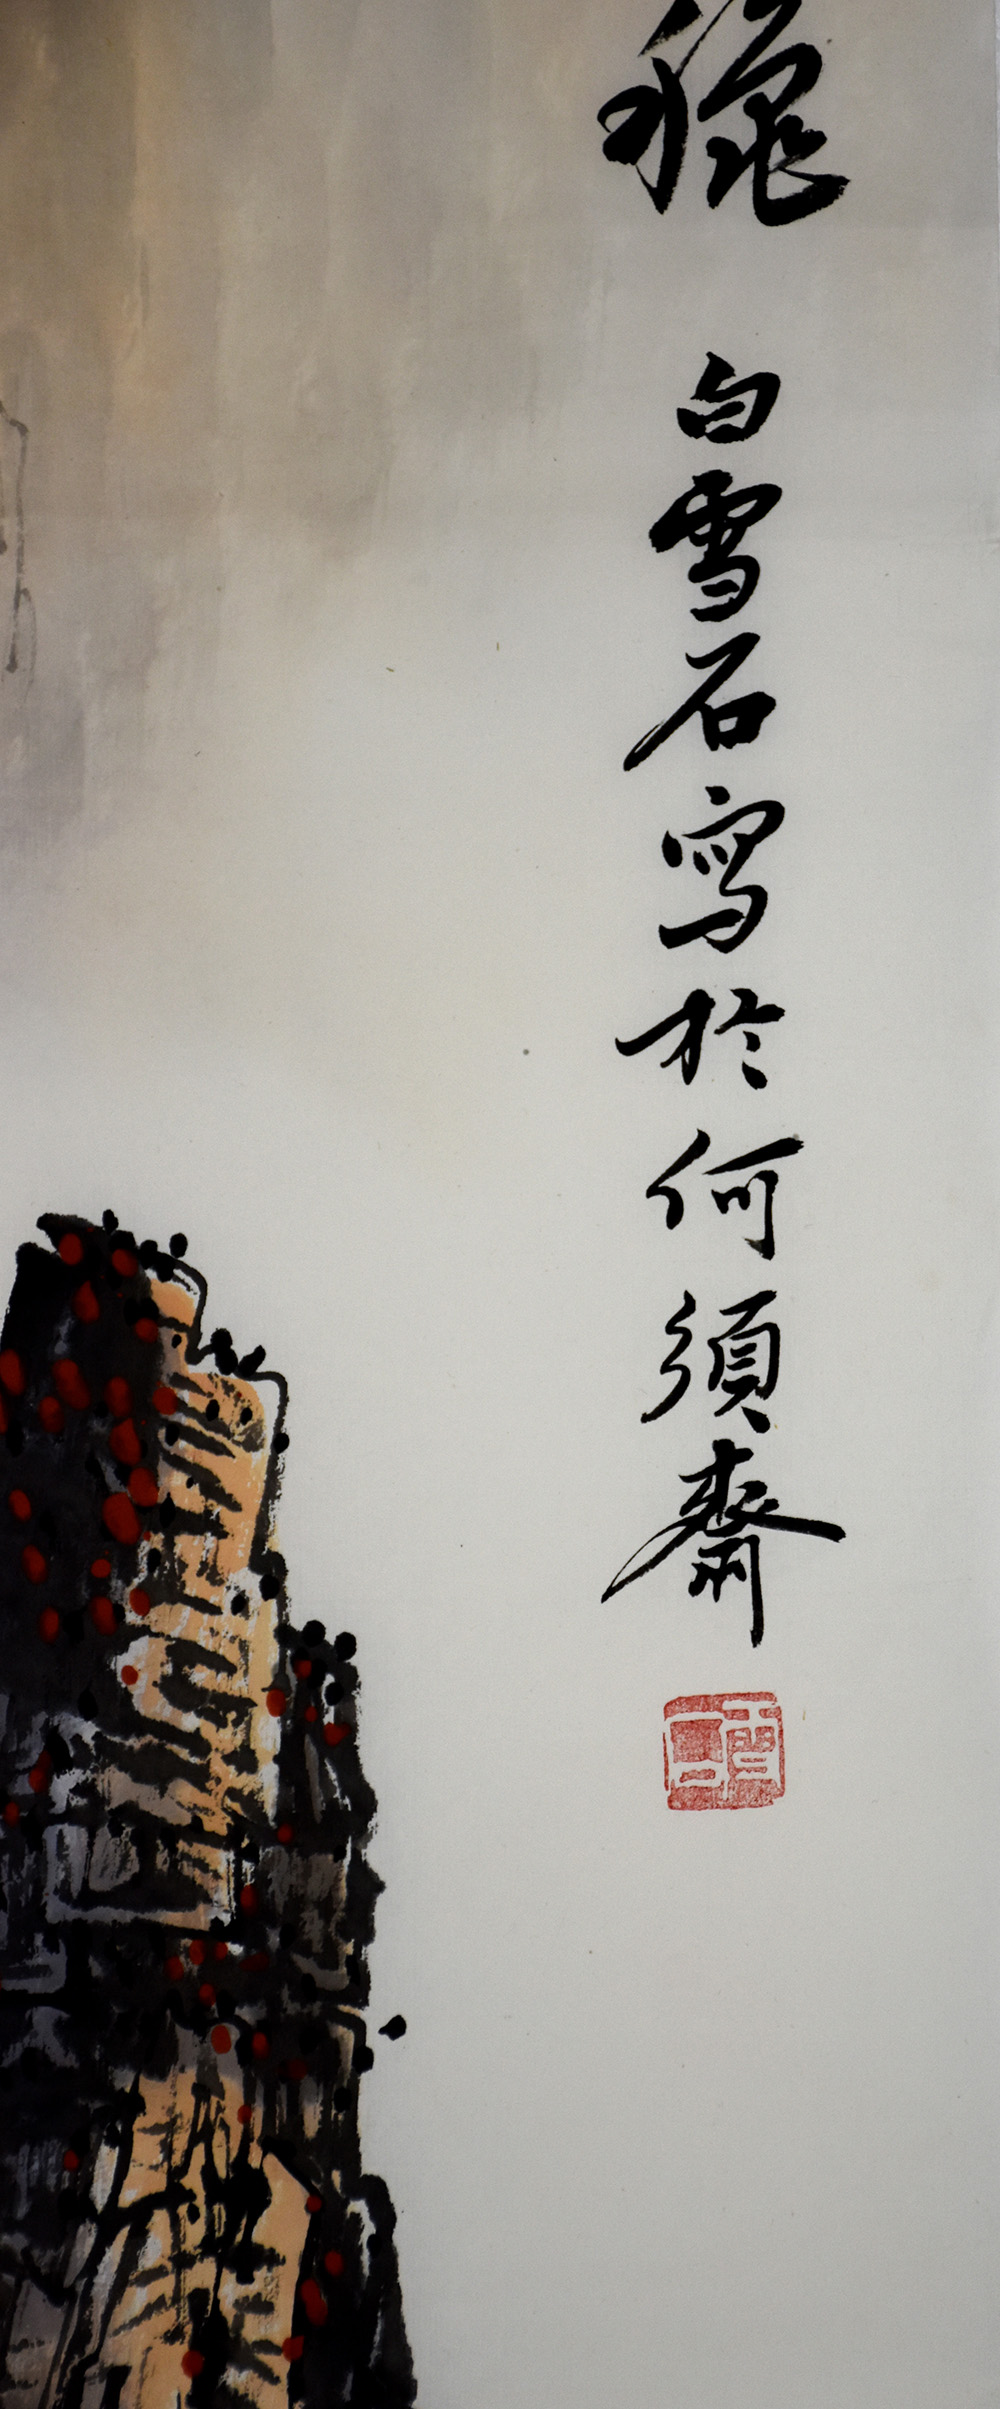 白雪石寫於何須齋
雪石